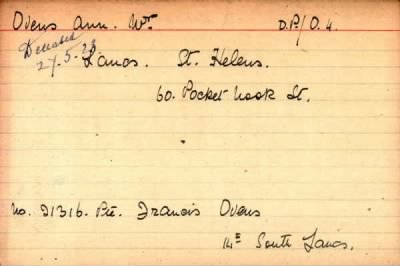 Ovens Ann. Wr. D.P/O.4.
Deceased
27-5-23
Lancs. St. Helens.
60. Pocket Nook St.
No. 21316. Pte. Francis Ovens
14th South Lancs.